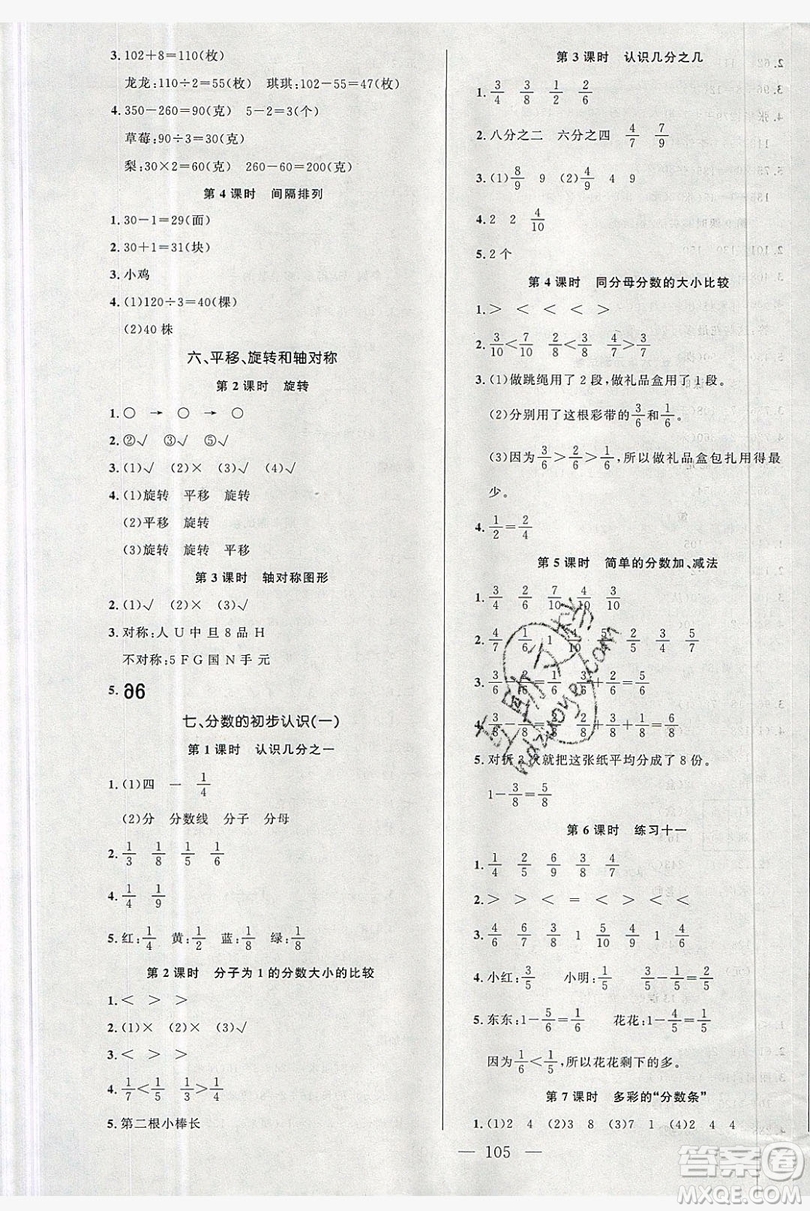 3. 102+8=110(枚)
龙龙:110÷2=55(枚) 琪琪:102-55=47(枚)
4. 350-260=90(克) 5-2=3(个)
草莓:90÷3=30(克)
梨:30×2=60(克) 260-60=200(克)
第4课时 间隔排列
1. 30-1=29(面)
2. 30+1=31(块)
3. 小鸡
4. (1)120÷3=40(棵)
(2)40株
六、平移、旋转和轴对称
第2课时 旋转
1. ○ → ○ ○
2. ②√ ④√ ⑤√
3. (1)√ (2)× (3)× (4)√
4. (1)旋转 平移 旋转
(2)平移 旋转
(3)旋转 旋转 平移
第3课时 轴对称图形
2. (1)√ (2)√
3. 对称:人U中旦8品H
不对称:5FG国N手元
5.
七、分数的初步认识(一)
第1课时 认识几分之一
1. (1)四 一 1/4
(2)分 分数线 分子 分母
2. 1/3 1/8 1/5 1/8
4. 1/4 1/9
5. 红:1/4 黄:1/2 蓝:1/8 绿:1/8
第2课时 分子为1的分数大小的比较
1. < > >
2. (1)× (2)× (3)√ (4)×
3. > < > >
4. 1/7<1/5 1/3>1/4
5. 第二根小棒长
第3课时 认识几分之几
1. 3/4 3/8 5/9 1/2
2. 八分之二 六分之四 4/7 7/9
3. (1)8/9 9 (2)4 4/9
4. 2 2 4/10
5. 2个
第4课时 同分母分数的大小比较
1. > < < >
2. 3/10<7/10 2/6<4/6
3. (1)做跳绳用了2段,做礼品盒用了1段。
(2)分别用了这根彩带的3/6和1/6。
(3)因为3/6>2/6>1/6,所以做礼品盒包扎用得最
少。
4. 1/2=2/4
第5课时 简单的分数加、减法
1. 3/4 2/4 7/10 4/10 3/10
5. 对折3次就把这张纸平均分成了8份。
1-3/8=5/8
第6课时 练习十一
1. 1/4 2/5 6/9 3/4 1/7
2. > > < = < > < <
4. 小红:3/5 小明:2/5
因为1/6<1/5,所以花花剩下的多。
第7课时 多彩的“分数条”
1. (1)2 4 (2)3 7 (3)5 1 (4)2 4 4
105
答案圈
MXQE.COM